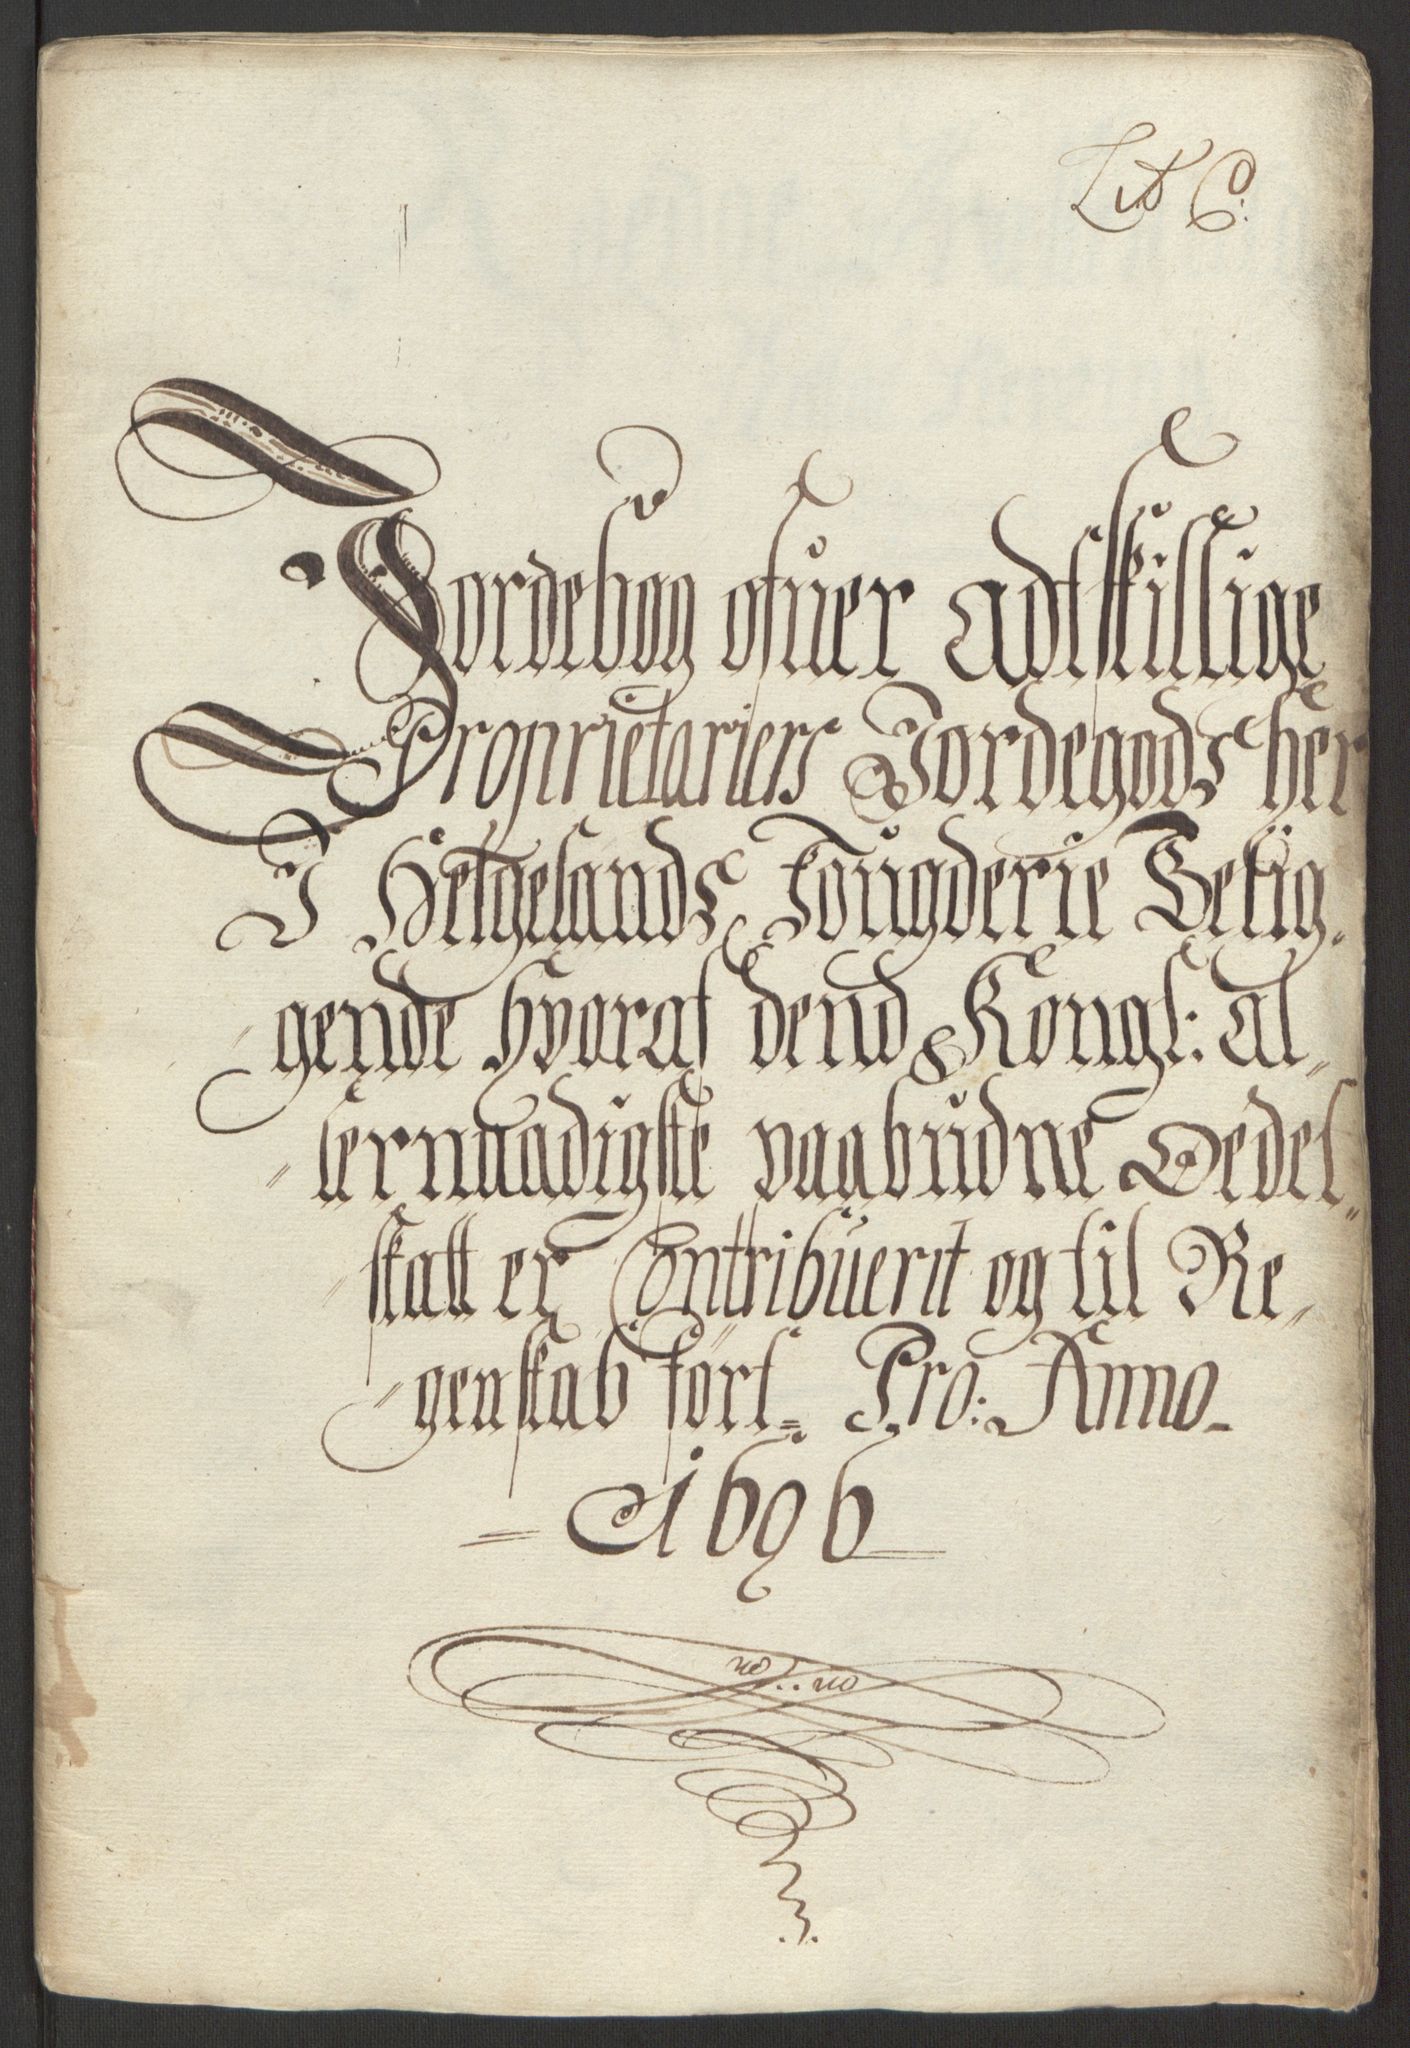 Lit C:
Jordebog ofuer Adtskillige
Proprietariers Jordegods her
I Helgelands fougderie Belig,
gende hvoraf dend Kongl: Al,,
lernaadigste paabudne Oedel,,
skatt er Contribuerit og til Re,,
genskab fört = Pro: Anno
1696